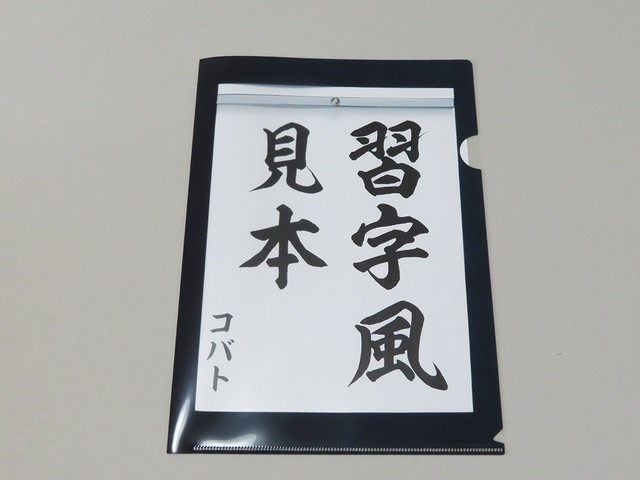 習字風
見本
コバト